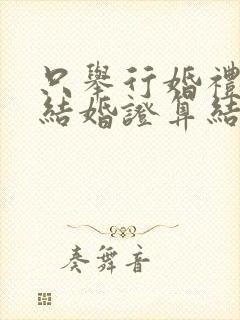 只舉行婚禮
結婚證算結
奏舞音